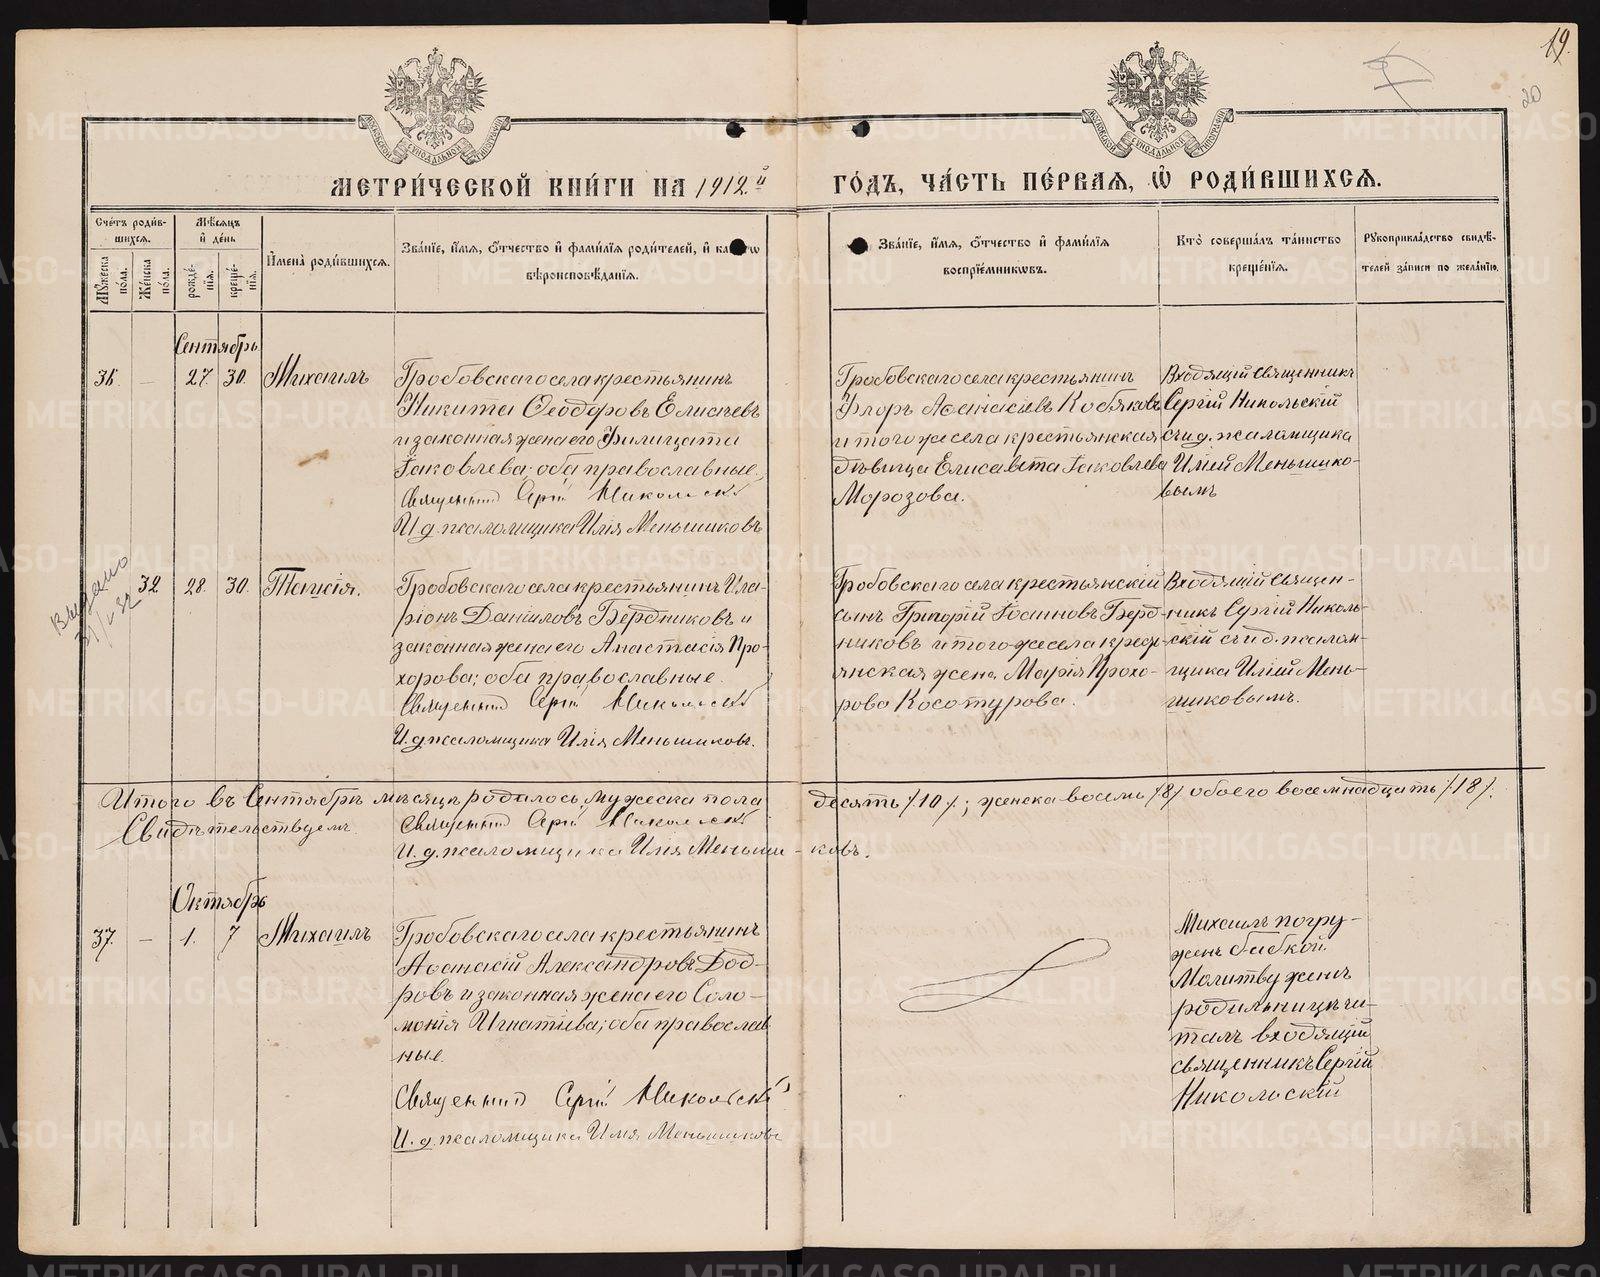 19.
20
МЕТРИ́ЧЕСКОЙ КНИ́ГИ НА 1912.й
ГО́ДЪ, ЧА́СТЬ ПЕ́РВАЯ, Ѡ РОДИ́ВШИХСЯ.
Сче́тъ роди́в-
шихся.
Мѣ́сяцъ
и де́нь
Му́жеска
по́ла.
Же́нска
по́ла.
рожде́-
нїя.
креще́-
нїя.
Имена̀ роди́вшихся.
Зва́нїе, и́мя, о́тчество и фами́лїя роди́телей, и
вѣроисповѣ́данїя.
Зва́нїе, и́мя, о́тчество и фами́лїя
воспрїе́мниковъ.
Кто̀ соверша́лъ та́инство
креще́нїя.
Рукоприкла́дство свидѣ́-
телей за́писи по жела́нїю.
Сентябрь
36. — 27. 30. Михаилъ
Гробовскаго села крестьянинъ
Никита Ѳеодоровъ Елисѣевъ
и законная жена его Филицата
Іаковлева; оба православные.
Священникъ Сергій Никольскій
И. д. псаломщика Илія Меньшиковъ
Гробовскаго села крестьянинъ
Флоръ Аѳанасіевъ Кобяковъ
и того же села крестьянская
дѣвица Елисавета Іаковлева
Морозова.
Входящій священникъ
Сергій Никольскій
съ и. д. псаломщика
Иліей Меньшико-
вымъ
Выдано
32 28. 30. Таисія.
Гробовскаго села крестьянинъ Ила-
ріонъ Даніиловъ Бердниковъ и
законная жена его Анастасія Про-
хорова; оба православные.
Священникъ Сергій Никольскій
И. д. псаломщика Илія Меньшиковъ.
Гробовскаго села крестьянскій
сынъ Григорій Іоанновъ Берд-
никовъ и того же села крест-
янская жена Марія Прохо-
рова Косотурова.
Входящій священ-
никъ Сергій Николь-
скій съ и. д. псалом-
щика Иліей Мень-
шиковымъ.
Итого въ Сентябрѣ мѣсяцѣ родилось: мужеска пола десять /10/; женска восемь /8/ обоего восемнадцать /18/.
Свидѣтельствуемъ:
Священникъ Сергій Никольскій
И. д. псаломщика Илія Меньши-ковъ.
Октябрь
37. — 1. 7 Михаилъ
Гробовскаго села крестьянинъ
Аѳанасій Александровъ Бод-
ровъ и законная жена его Соло-
монія Игнатіева; оба православ
ные.
Священникъ Сергій Никольскій
И. д. псаломщика Илія Меньшиковъ
Михаилъ погру-
женъ бабкой.
Молитву женѣ
родильницѣ чи-
талъ входящій
священникъ Сергій
Никольскій
METRIKI.GASO-URAL.RU